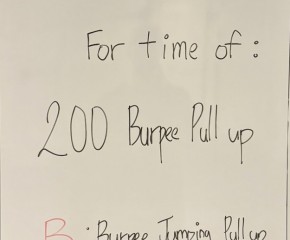 For time of :
200 Burpee Pull up
B : Burpee Jumping Pull up